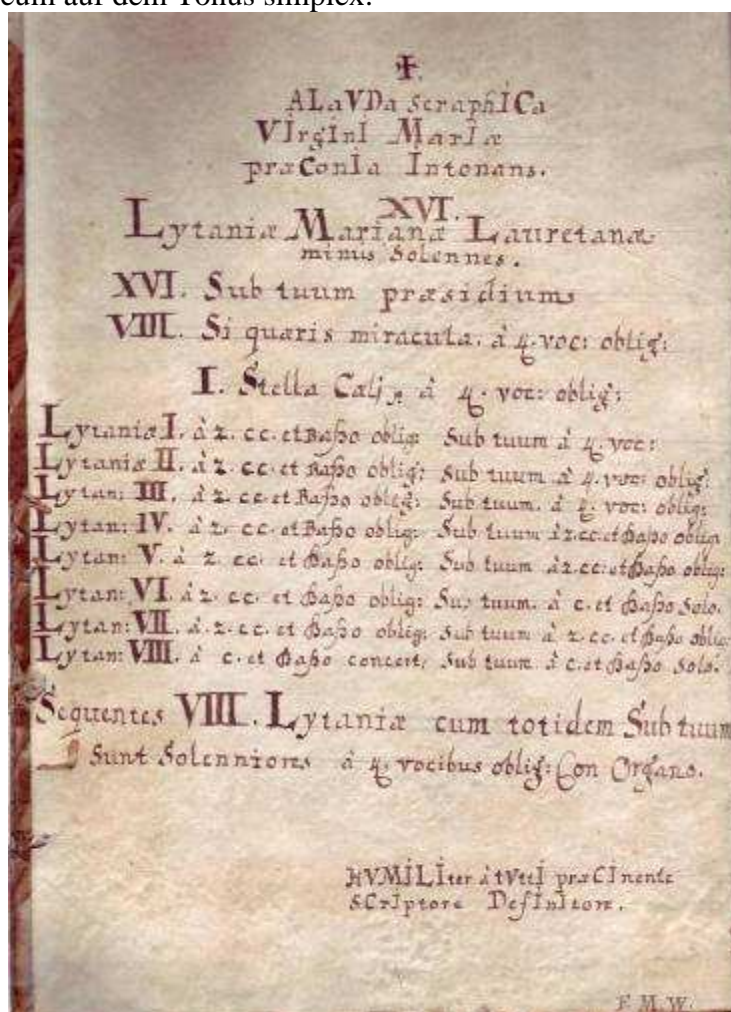 cum auf dem Tonus simplex.
ALaVDa seraphICa
VIrgInI MarIæ
præConIa Intonans.
XVI.
Lytaniæ Mariana Lauretanæ
minus Solennes.
XVI. Sub tuum præsidium
VIII. Si quæris miracula. à 4. voc: oblig:
I. Stella Cælj à 4. voc: oblig:
Lytaniæ I. à 2. cc. et Baßo oblig: Sub tuum à 4. voc:
Lytaniæ II. à 2. cc. et Baßo oblig: Sub tuum à 4. voc: oblig:
Lytan: III. à 2. cc. et Baßo oblig: Sub tuum. à 4. voc: oblig:
Lytan: IV. à 2. cc. et Baßo oblig: Sub tuum à 2. cc. et Baßo oblig:
Lytan: V. à 2. cc. et Baßo oblig: Sub tuum à 2. cc. et Baßo oblig:
Lytan: VI. à 2. cc. et Baßo oblig: Sub tuum. à c. et Baßo Solo.
Lytan: VII. à 2. cc. et Baßo oblig: Sub tuum à 2. cc. et Baßo oblig:
Lytan: VIII. à c. et Baßo concert, Sub tuum à c. et Baßo Solo.
Sequentes VIII. Lytaniæ cum totidem Sub tuum
Sunt Solenniores à 4. vocibus oblig: Con Organo.
HVMILIter à tVttI præCInente
SCrIptore DefInItore.
F. M. W.